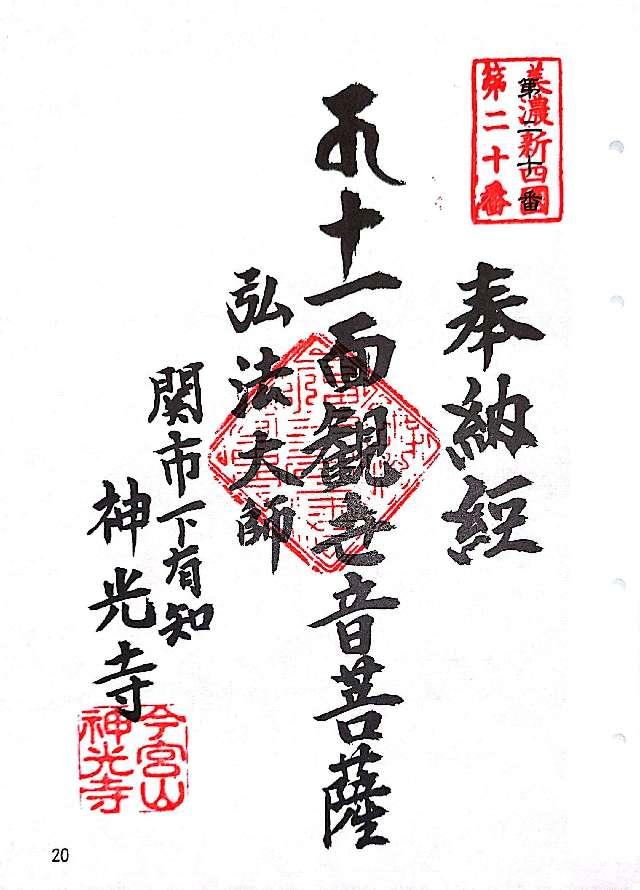 美濃新四国
第二十番
第二十番
奉納経
十一面観世音菩薩
弘法大師
関市下有知
神光寺
今宮山
神光寺
20